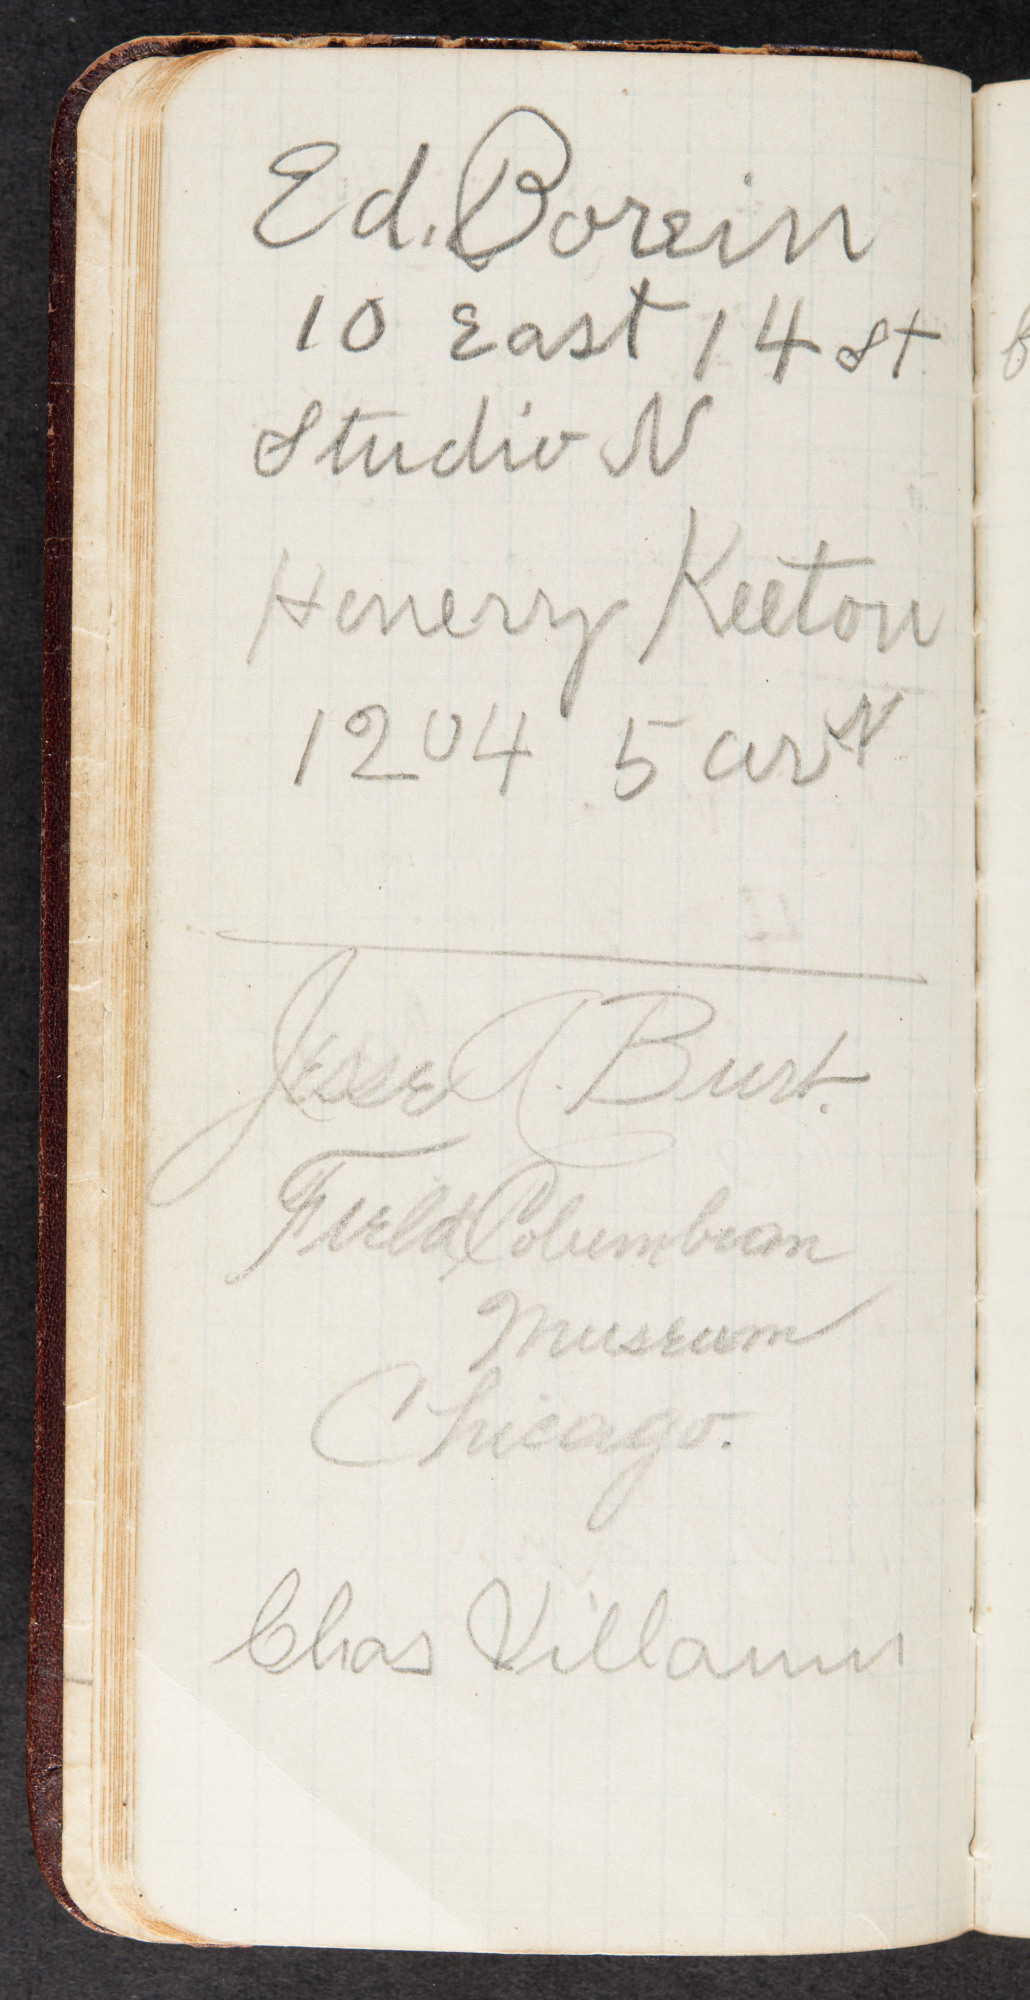 Ed. Borein
10 East 14 St
Studio N
Henerry Keeton
1204 5 av N
Jesse A. Burt.
Field Columbian
Museum
Chicago.
Chas